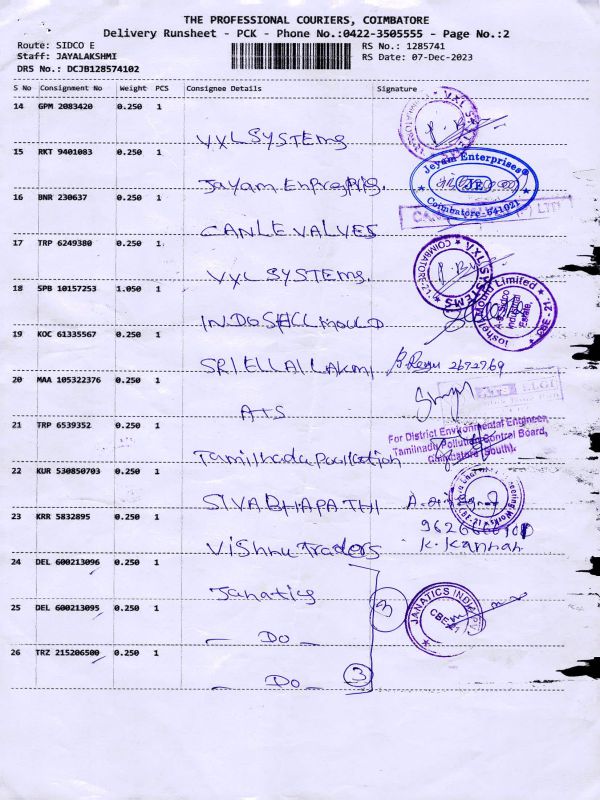 THE PROFESSIONAL COURIERS, COIMBATORE
Delivery Runsheet - PCK - Phone No.:0422-3505555 - Page No.:2
Route: SIDCO E
RS No.: 1285741
Staff: JAYALAKSHMI
RS Date: 07-Dec-2023
DRS No.: DCJB128574102
S No Consignment No Weight PCS Consignee Details Signature
14 GPM 2083420 0.250 1
VXL SYSTEMS
VXL SYSTEMS
15 RKT 9401083 0.250 1
Jayam Enterprises.
Jeyam Enterprises®
JE
Coimbatore-641021
16 BNR 230637 0.250 1
CANLE VALVES
17 TRP 6249380 0.250 1
VXL SYSTEMS
VXL SYSTEMS
18 SPB 10157253 1.050 1
INDOSHELL MOULD
Indoshell Mould Limited
A-9, Sidco
Industrial
Estate,
CBE - 21
19 KOC 61335567 0.250 1
SRI ELLAI LAKMI
2672769
20 MAA 105322376 0.250 1
ATS
ELGI
21 TRP 6539352 0.250 1
Tamilnadu Pollution
For District Environmental Engineer,
Tamilnadu Pollution Control Board,
Coimbatore (South).
22 KUR 530850703 0.250 1
SIVABHAPATHI
23 KRR 5832895 0.250 1
Vishnu Traders
K. Kannan
24 DEL 600213096 0.250 1
Janatics
JANATICS INDIA
CBE-21
3
25 DEL 600213095 0.250 1
— Do —
26 TRZ 215206500 0.250 1
— Do —
3